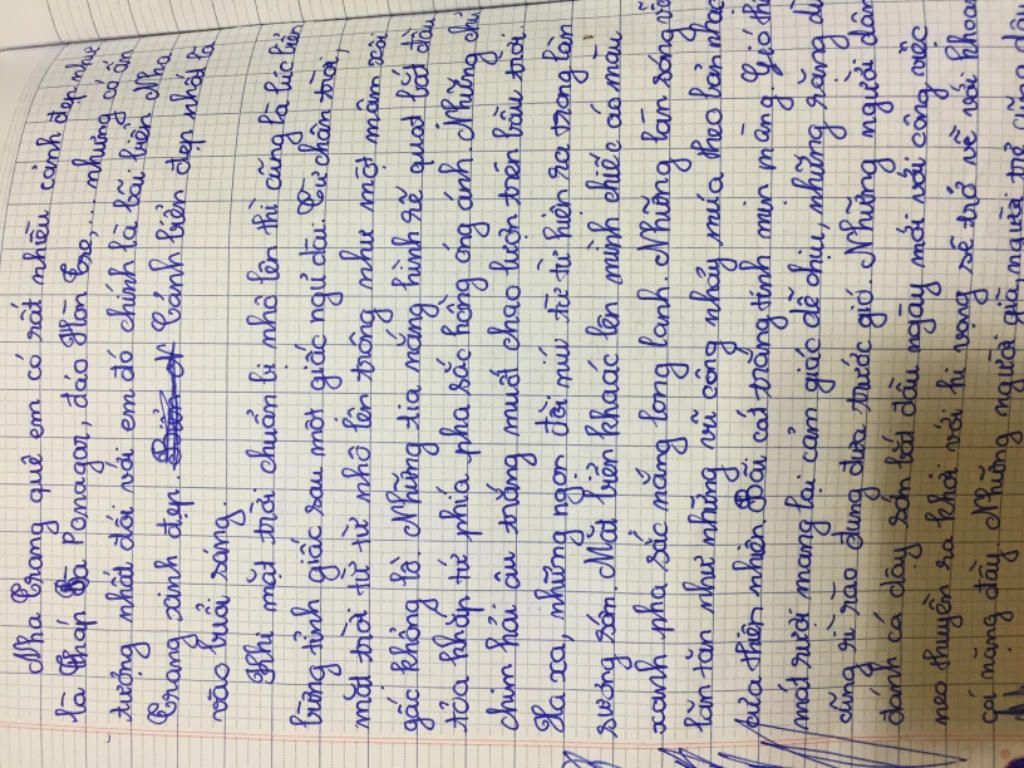 Nha Trang quê em có rất nhiều cảnh đẹp như
là Tháp Bà Ponagar, đảo Hòn Tre,... nhưng có ấn
tượng nhất đối với em đó chính là bãi biển Nha
Trang xinh đẹp. Cảnh biển đẹp nhất là
vào buổi sáng.
Khi mặt trời chuẩn bị nhô lên thì cũng là lúc biển
bừng tỉnh giấc sau một giấc ngủ dài. Từ chân trời,
mặt trời từ từ nhô lên trông như một mâm xôi
gấc khổng lồ. Những tia nắng hình rẽ quạt bắt đầu
tỏa khắp tứ phía pha sắc hồng óng ánh. Những chú
chim hải âu trắng muốt chao lượn trên bầu trời
Xa xa, những ngọn đồi núi từ từ hiện ra trong làn
sương sớm. Mặt biển khoác lên mình chiếc áo màu
xanh pha sắc nắng long lanh. Những làn sóng vỗ
lăn tăn như những vũ công nhảy múa theo bản nhạc
của thiên nhiên Bãi cát trắng tinh mịn màng. Gió thổi
mát rượi mang lại cảm giác dễ chịu, những rặng dừ
cũng rì rào đung đưa trước gió. Những người dân
đánh cá dậy sớm bắt đầu ngày mới với công việc
neo thuyền ra khơi với hi vọng sẽ trở về với khoan
cá nặng đầy. Những người già, người trẻ cũng dậy